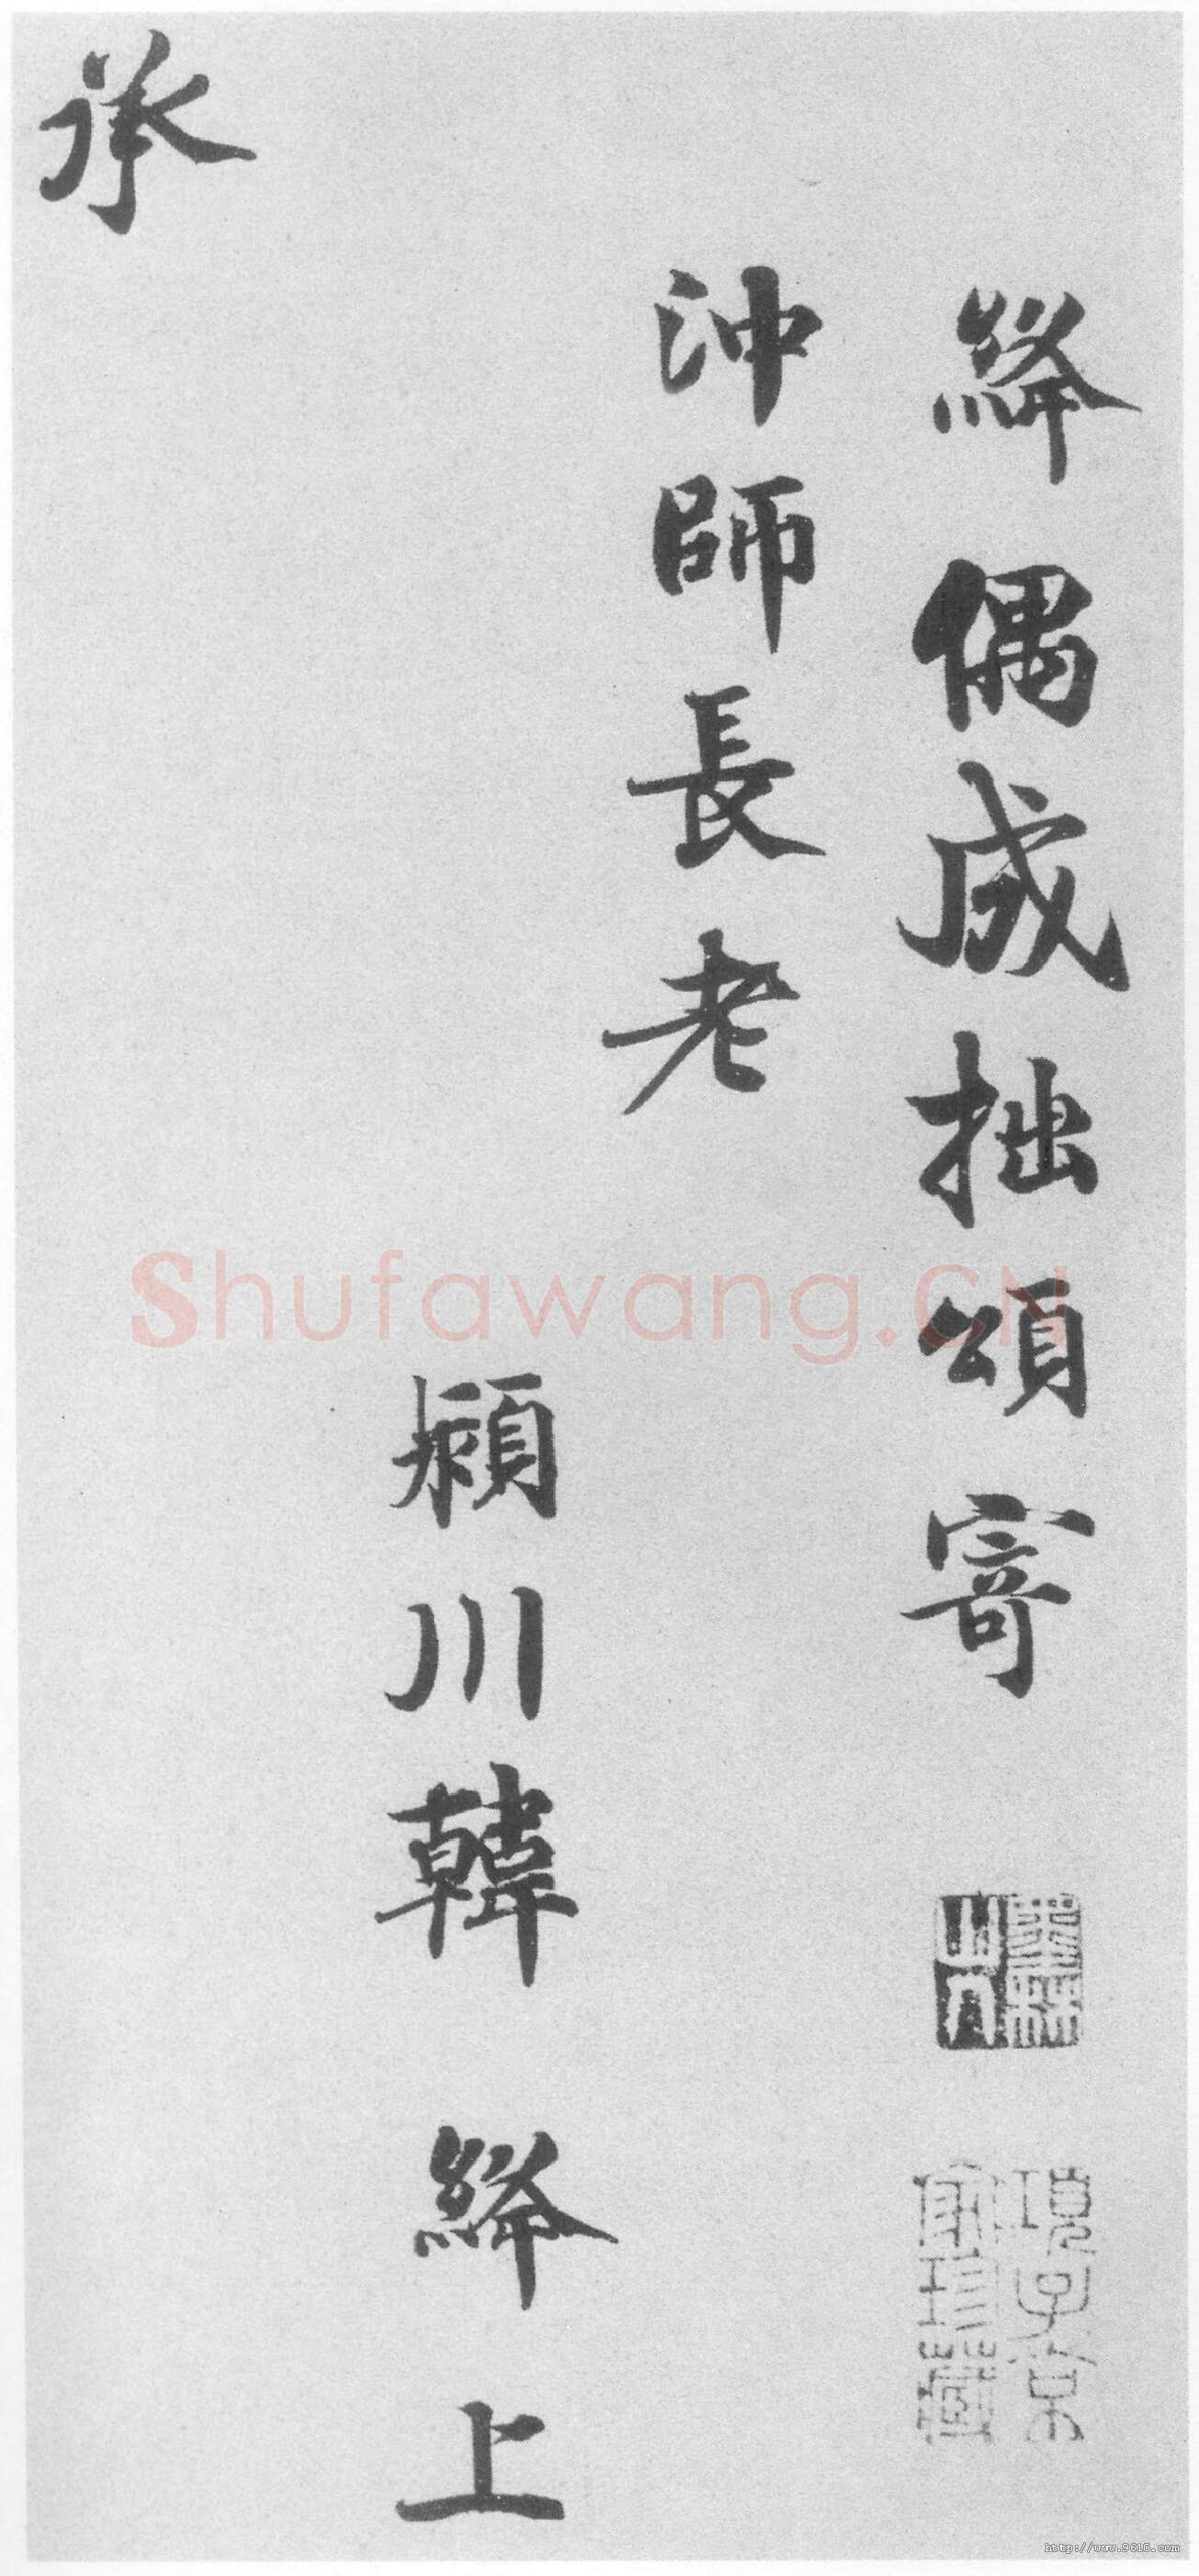 絳偶成拙頌寄
沖師長老
潁川韓絳上
承
墨林山人
項子京家珍藏
Shufawang.CN
http://www.9610.com